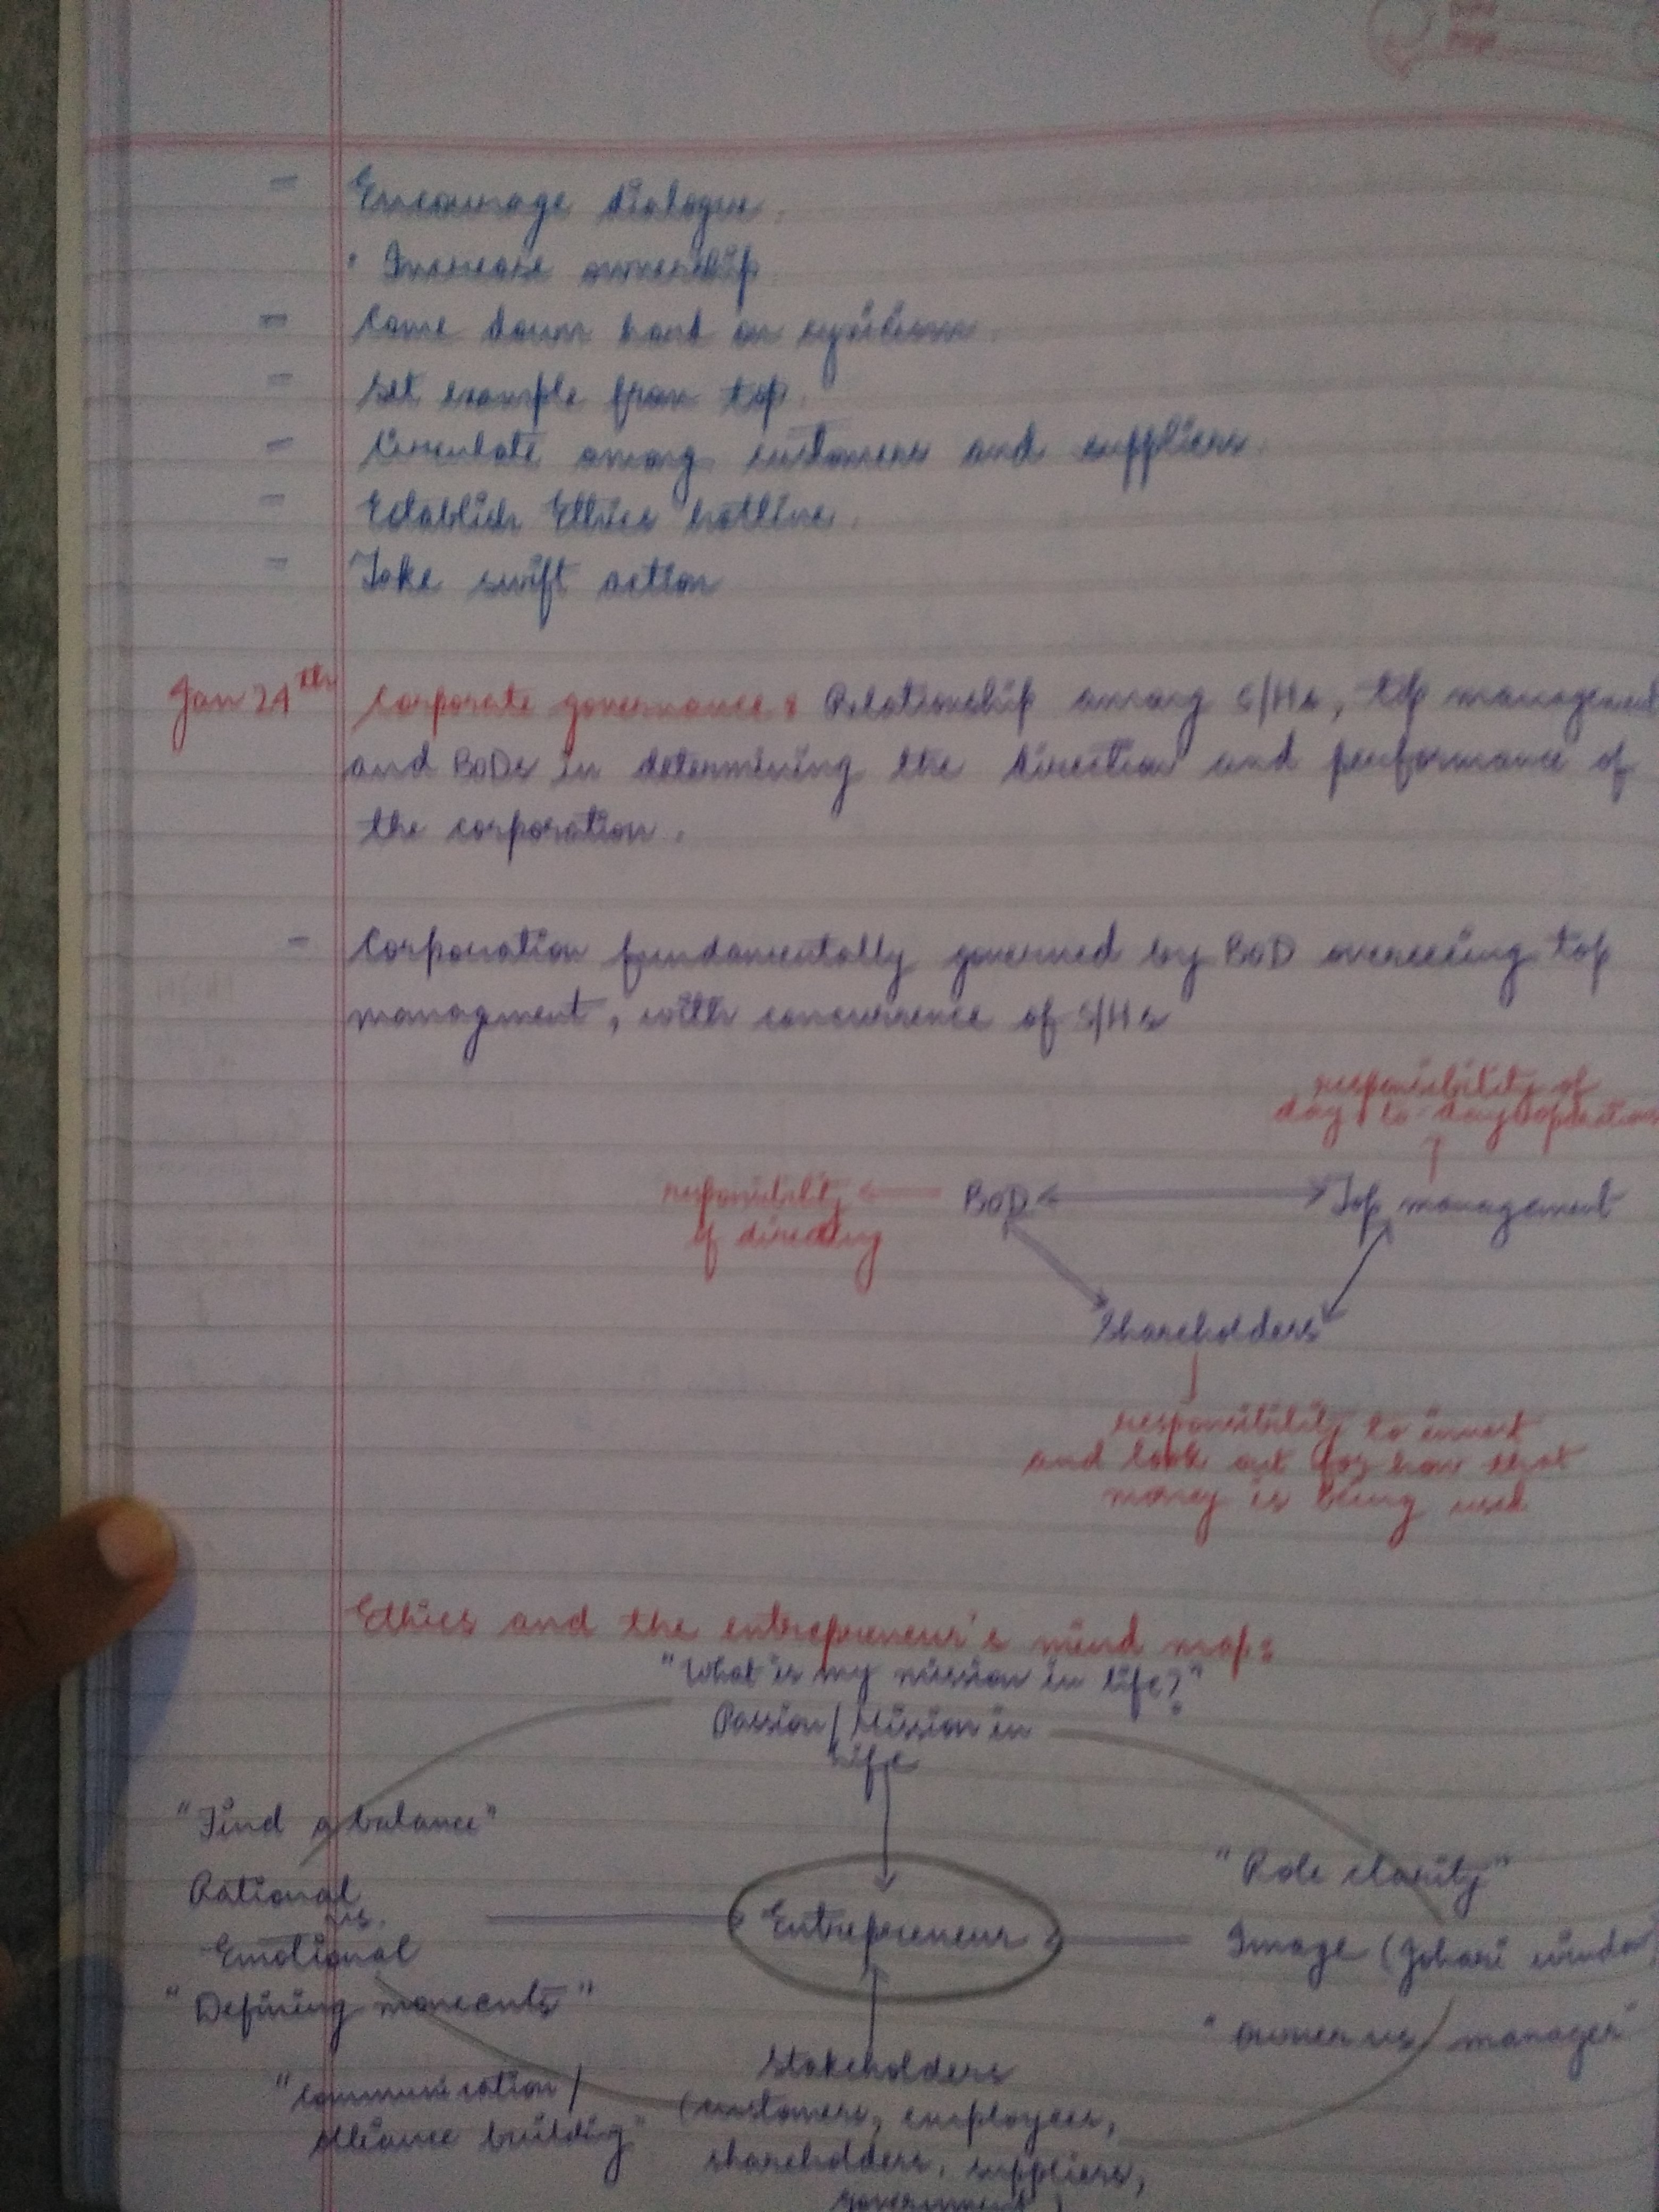 - Encourage dialogue.
· Increase ownership
- Come down hard on cynicism.
- Set example from top.
- Circulate among customers and suppliers.
- Establish Ethics hotline.
- Take swift action
Jan 24th Corporate governance: Relationship among S/Hs, top management
and BoDs in determining the direction and performance of
the corporation.
- Corporation fundamentally governed by BoD overseeing top
managment, with concurrence of S/Hs
responsibility of
day to day operations
responsibility BoD Top management
of directing
Shareholders
responsibility to invest
and look out for how that
money is being used
Ethics and the entrepreneur's mind map:
"What is my mission in life?"
Passion / Mission in
life
"Find a balance"
"Role clarity"
Rational
vs.
Entrepreneur
Emotional
Image (Johari window)
"Defining moments"
"owner vs manager"
Stakeholders
"communication /
(customers, employees,
alliance building"
shareholders, suppliers,
government)